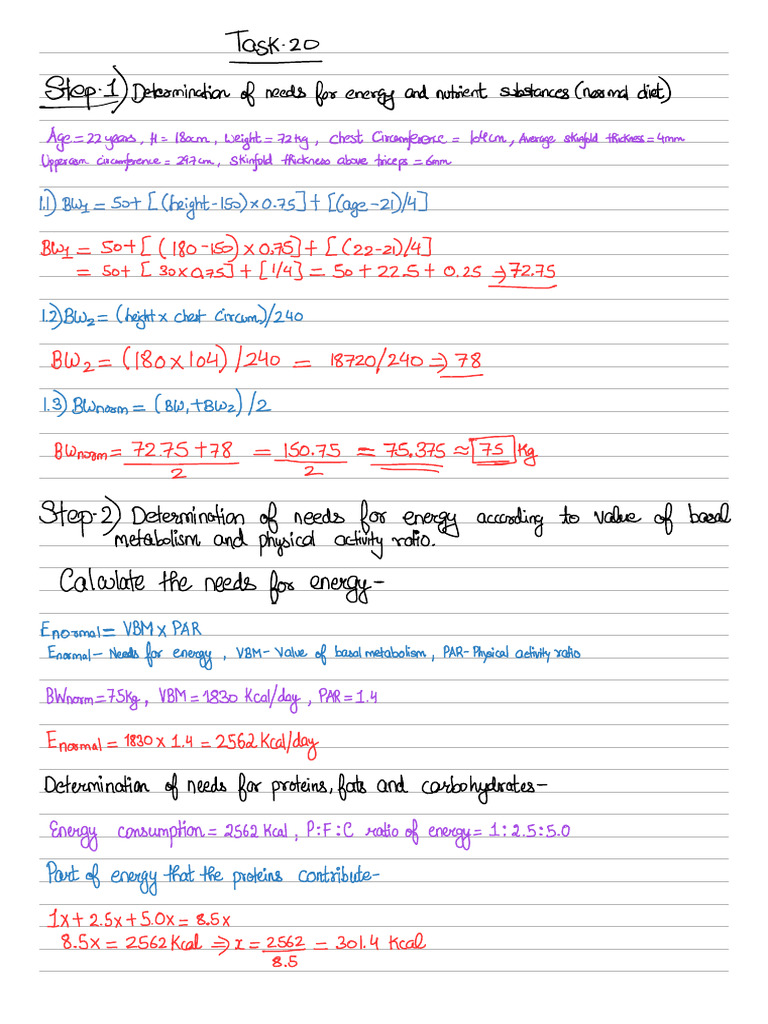 Task-20
Step-1) Determination of needs for energy and nutrient substances (normal diet)
Age = 22 years, H = 180cm, Weight = 72kg, chest Circumference = 104cm, Average skinfold thickness = 4mm
Upperarm circumference = 29.7cm, Skinfold thickness above triceps = 6mm
1.1) BW₁ = 50+[(height-150)×0.75]+[(age-21)/4]
BW₁ = 50+[(180-150)×0.75]+[(22-21)/4]
= 50+[30×0.75]+[1/4] = 50+22.5+0.25 ⇒ 72.75
1.2) BW₂ = (height × chest circum.)/240
BW₂ = (180×104)/240 = 18720/240 ⇒ 78
1.3) BWnorm = (BW₁+BW₂)/2
BWnorm = 72.75+78/2 = 150.75/2 = 75.375 ≈ 75 Kg
Step-2) Determination of needs for energy according to value of basal
metabolism and physical activity ratio.
Calculate the needs for energy-
Enormal = VBM × PAR
Enormal - Needs for energy, VBM- Value of basal metabolism, PAR- Physical activity ratio
BWnorm = 75kg, VBM = 1830 Kcal/day, PAR = 1.4
Enormal = 1830 × 1.4 = 2562 Kcal/day
Determination of needs for proteins, fats and carbohydrates-
Energy consumption = 2562 Kcal, P:F:C ratio of energy = 1:2.5:5.0
Part of energy that the proteins contribute-
1x + 2.5x + 5.0x = 8.5x
8.5x = 2562 Kcal ⇒ x = 2562/8.5 - 301.4 Kcal